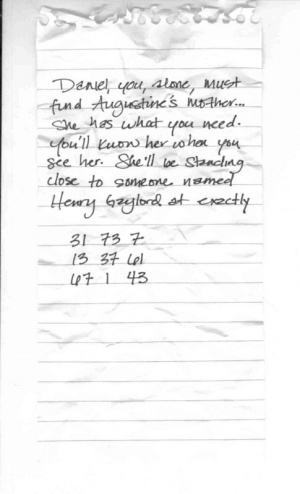 Daniel, you, alone, must
find Augustine's mother...
She has what you need.
You'll know her when you
see her. She'll be standing
close to someone named
Henry Gaylord at exactly
31 73 7
13 37 61
67 1 43